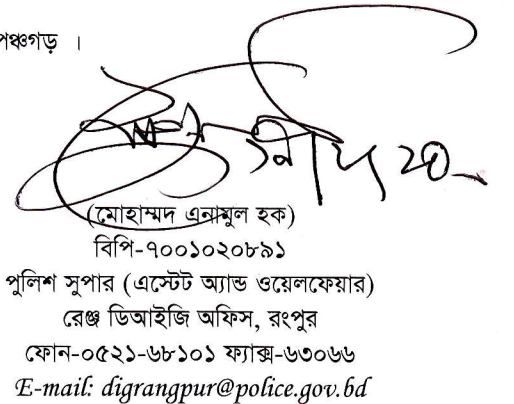 পঞ্চগড় ।
(মোহাম্মদ এনামুল হক)
বিপি-৭০০১০২০৮৯১
পুলিশ সুপার (এস্টেট অ্যান্ড ওয়েলফেয়ার)
রেঞ্জ ডিআইজি অফিস, রংপুর
ফোন-০৫২১-৬৮১০১ ফ্যাক্স-৬৩০৬৬
E-mail: digrangpur@police.gov.bd